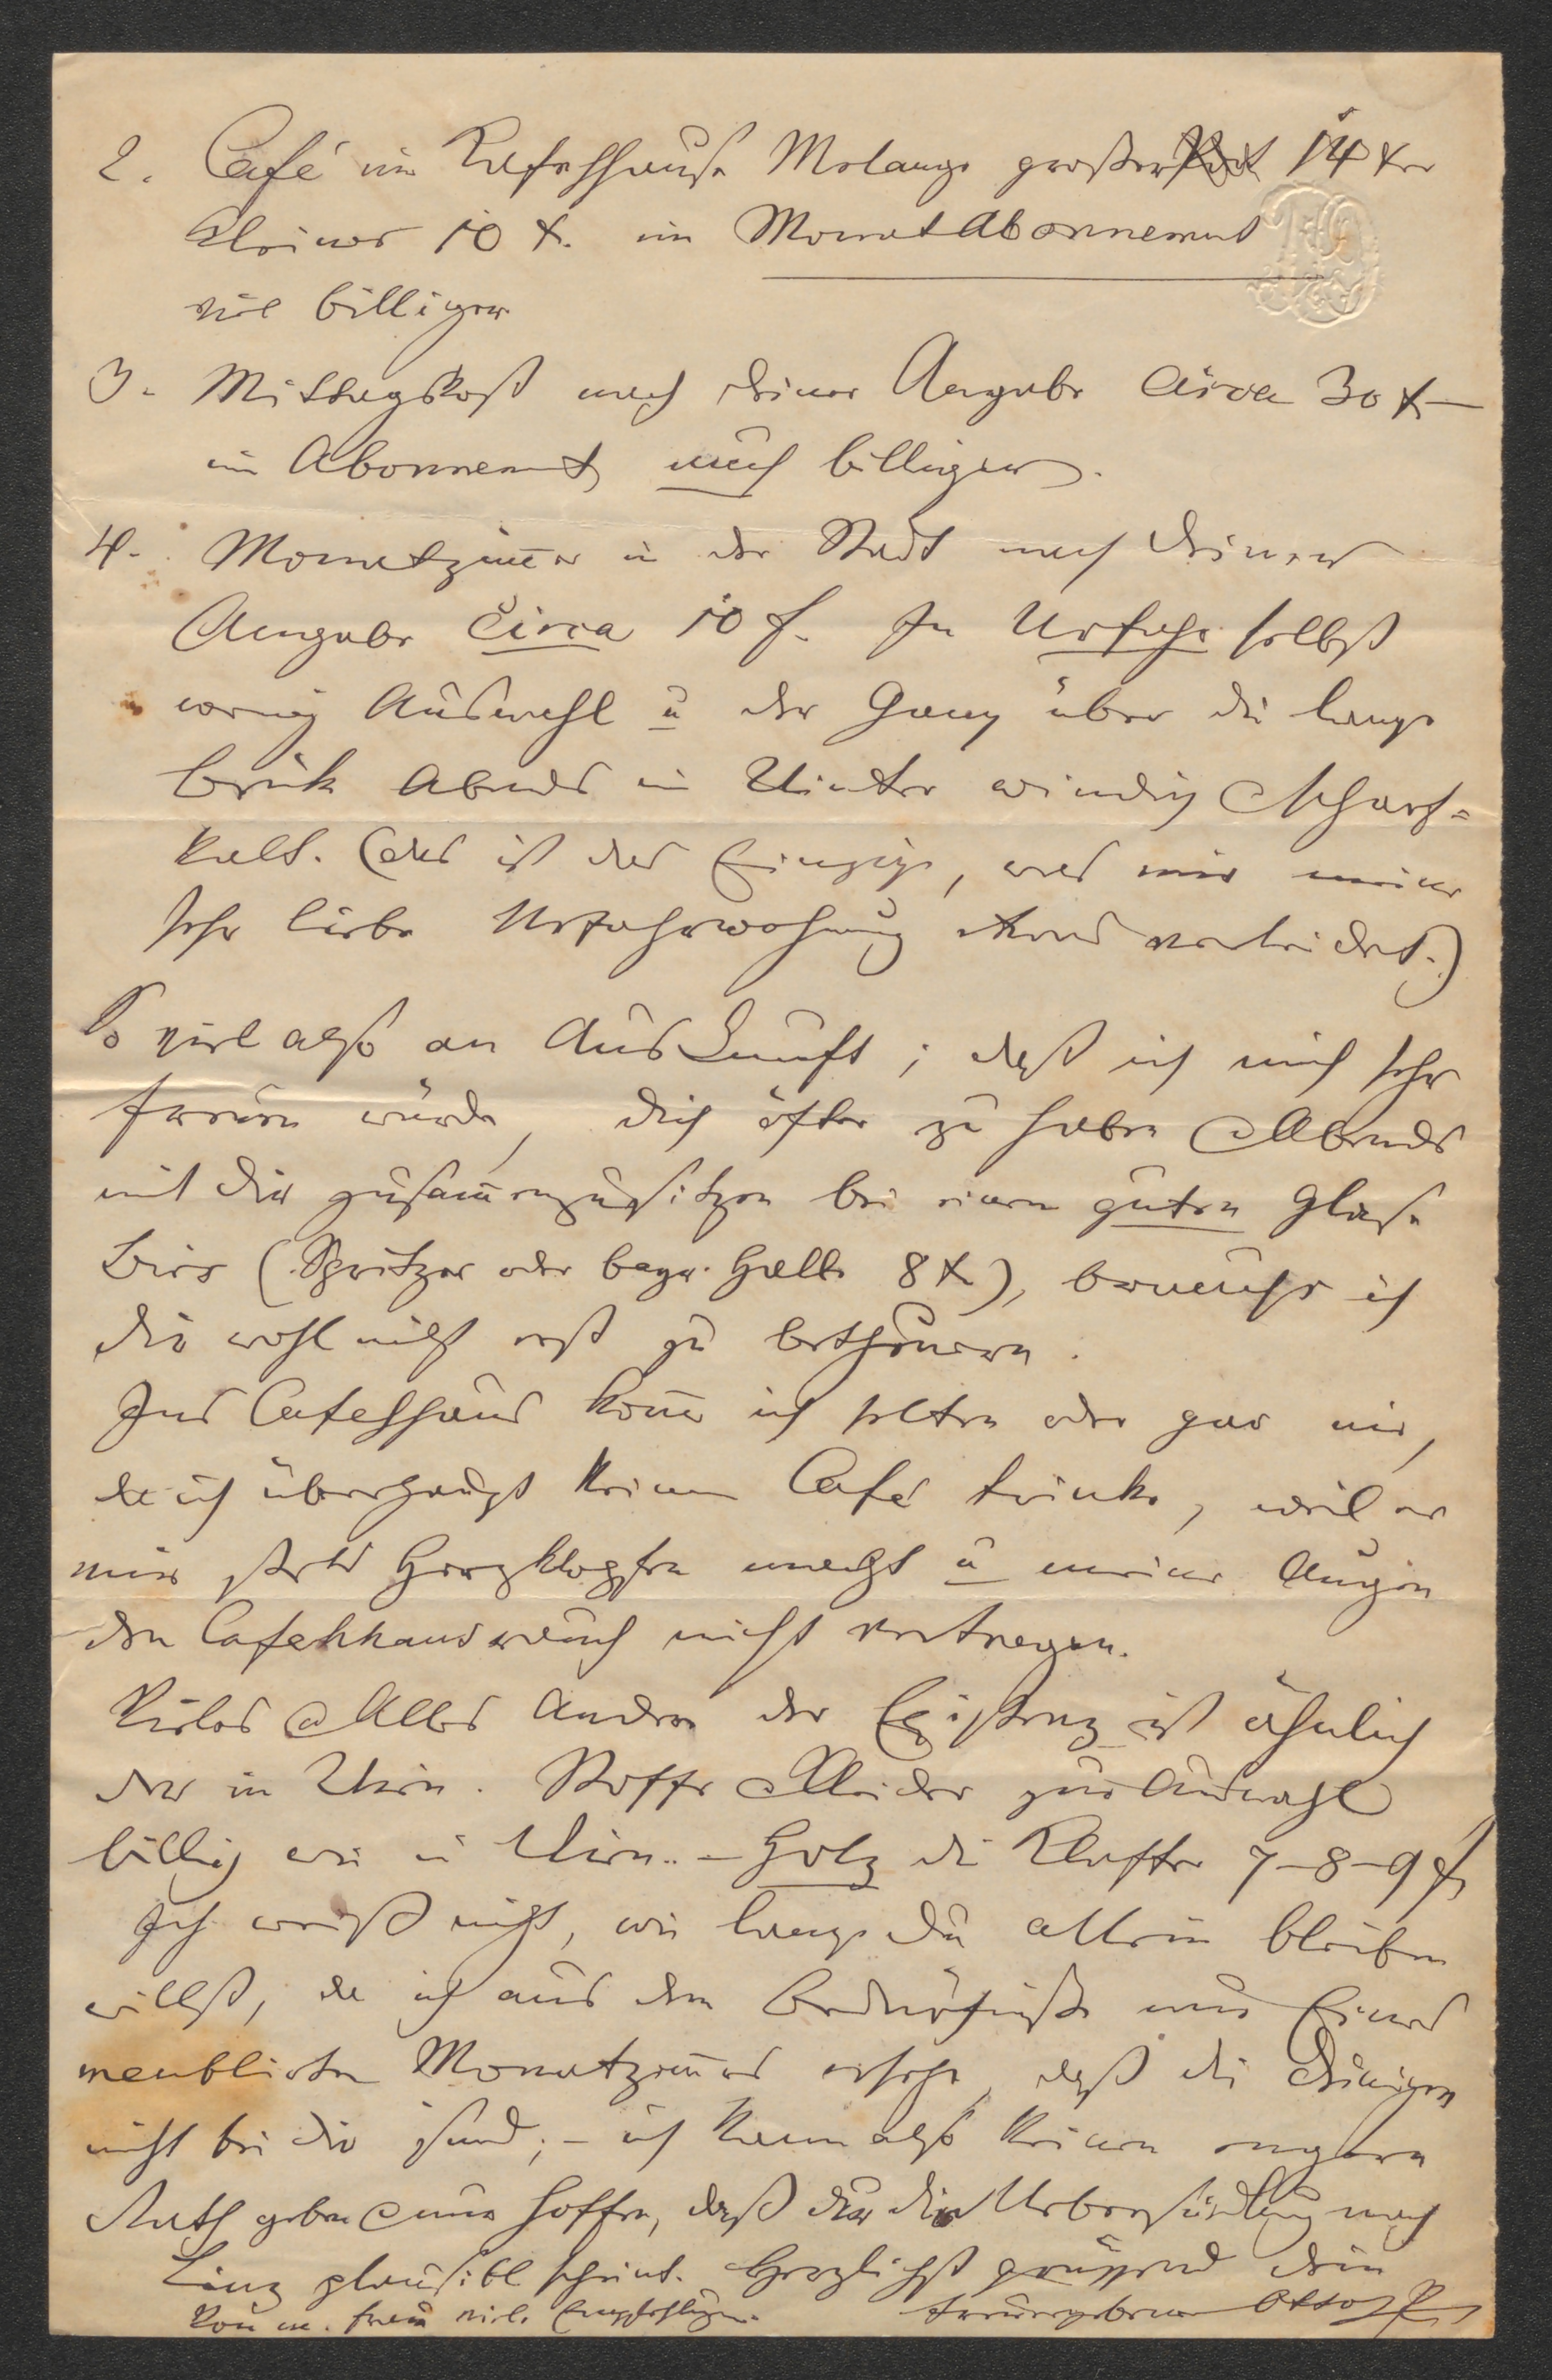 2. Café im Kafehhause Melange großer 14 xr
kleiner 10 x. im Monatabonnement
viel billiger
3. Mittagskost nach deiner Angabe circa 30 x –
im Abonnement auch billiger.
4. Monatzim̅er in der Stadt nach deiner
Angabe circa 10 f. In Urfahr selbst
wenig Auswahl u der Gang über die lange
Brücke Abends im Winter windig & scharf=
kalt. (das ist das Einzige, was mir meine
sehr liebe Urfahrwohnung etwas verleidet.)
So viel also an Auskunft; daß ich mich sehr
freuen würde, dich öfter zu haben & Abends
mit dir zusam̅enzusitzen bei einem guten Glase
Bier (Spritzer oder bayr. Halbe 8 x), brauche ich
dir wohl nicht erst zu betheuern.
Ins Cafehhaus kom̅e ich selten oder gar nie,
da ich überhaupt keinen Café trinke, weil er
mir stets Herzklopfen macht u meine Augen
den Cafehhausrauch nicht vertragen.
Vieles & Alles Andere der Existenz ist ähnlich
der in Wien. Stoffe & Kleider zur Auswahl
billig wie in Wien. – Holz die Klafter 7–8–9 f
Ich weiß nicht, wie lange du allein bleiben
willst, da ich aus dem Bedürfniße nur Eines
meublirten Monatzim̅ers ersehe, daß die Deinigen
nicht bei dir sind; – ich kann also keinen engern
Rath geben & nur hoffen, daß dir die Uebersiedlung nach
Linz plausibl scheint. Herzlichst grüßend dein
Von m. Frau viele Empfehlungen. treuergebener Otto